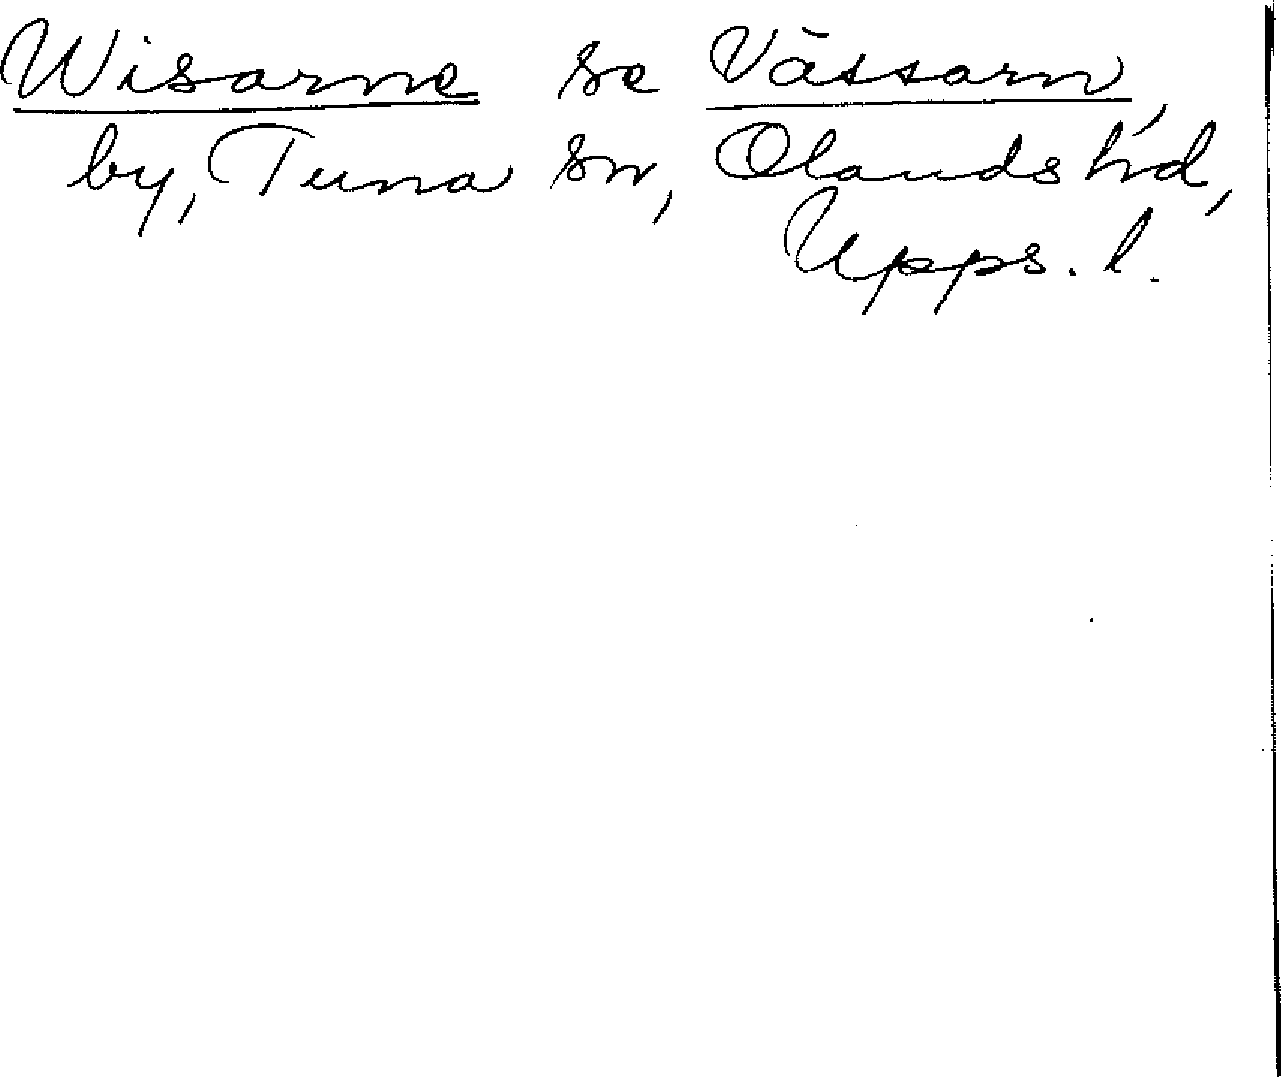 Wisarne se Vässarn,
by, Tuna sn, Olands hd,
Upps. l.